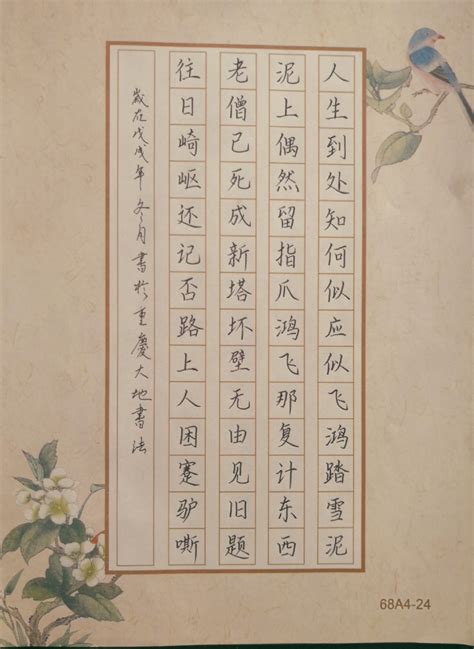 人生到处知何似应似飞鸿踏雪泥
泥上偶然留指爪鸿飞那复计东西
老僧已死成新塔坏壁无由见旧题
往日崎岖还记否路上人困蹇驴嘶
歳在戊戌年冬月書於重慶大地書法
68A4-24